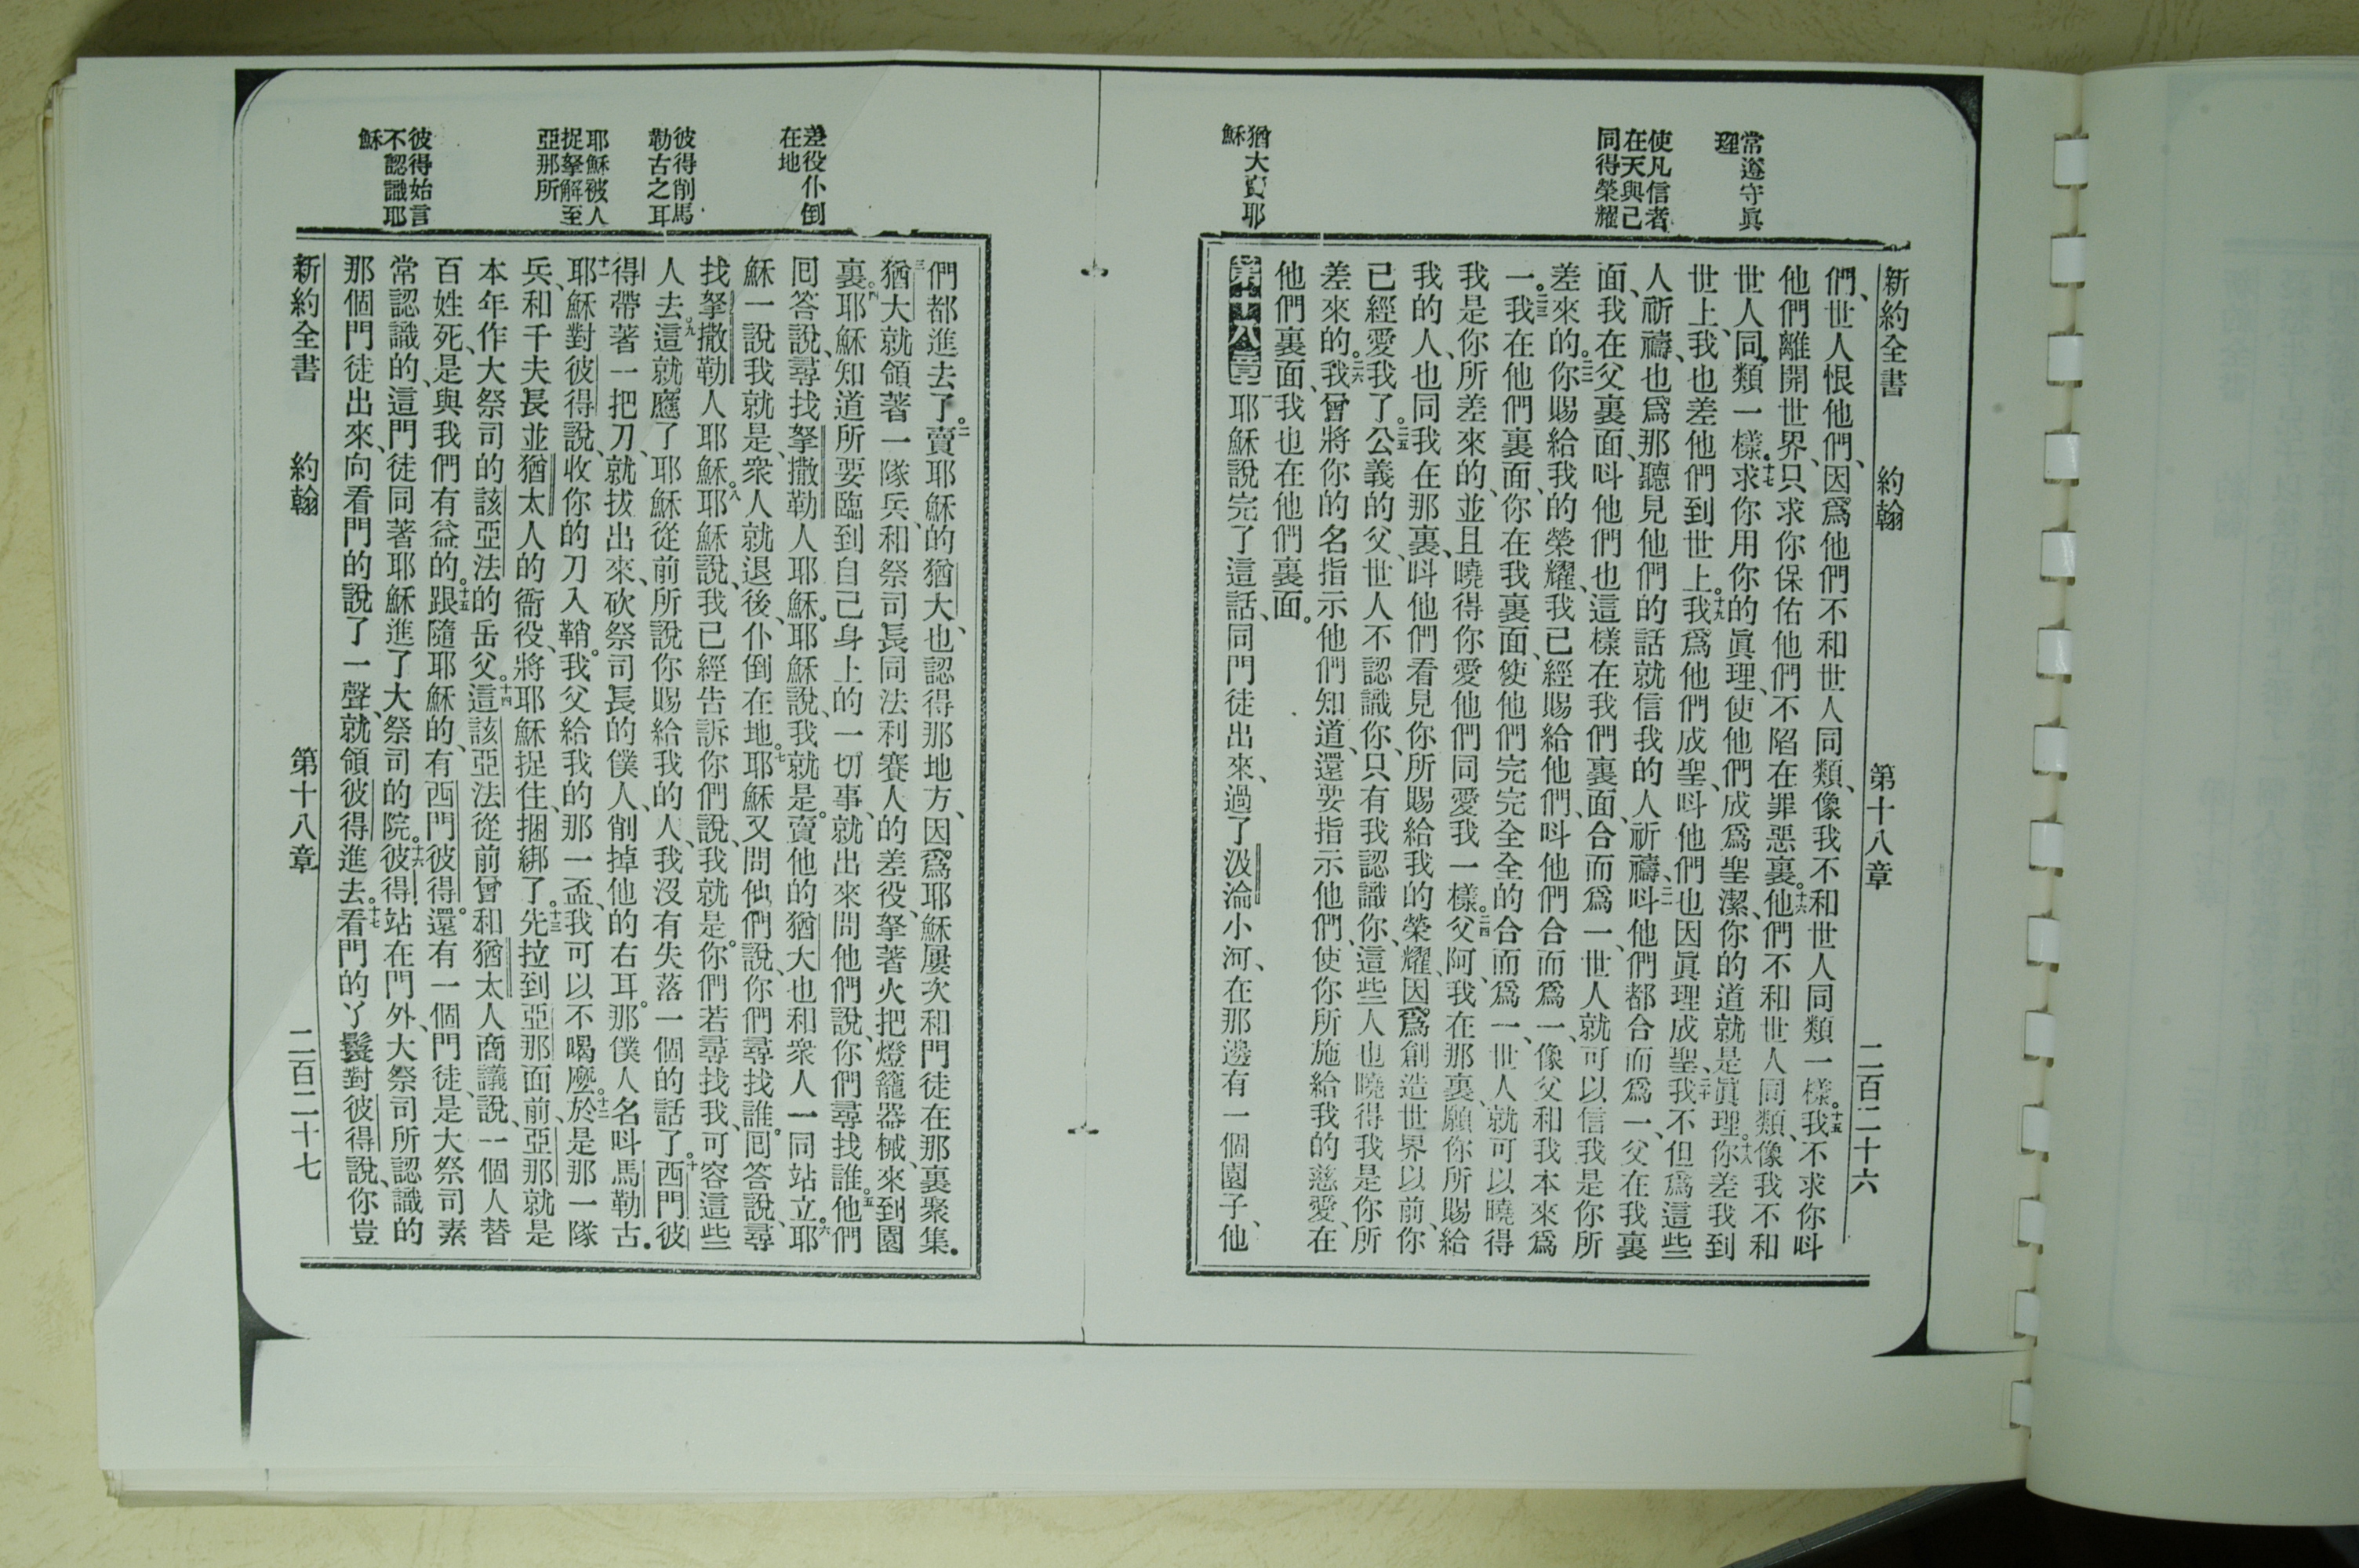 常遵守眞
理
使凡信者
在天與己
同得榮耀
猶大賣耶
穌
新約全書　約翰　第十八章　二百二十六
們、世人恨他們、因爲他們不和世人同類、像我不和世人同類一樣。十五我不求你呌
他們離開世界、只求你保佑他們不陷在罪惡裏。十六他們不和世人同類、像我不和
世人同類一樣。十七求你用你的眞理、使他們成爲聖潔、你的道就是眞理。十八你差我到
世上、我也差他們到世上。十九我爲他們成聖、呌他們也因眞理成聖、二十我不但爲這些
人祈禱、也爲那聽見他們的話就信我的人祈禱、二一呌他們都合而爲一、父在我裏
面、我在父裏面、呌他們也這樣在我們裏面、合而爲一、世人就可以信我是你所
差來的。二二你賜給我的榮耀、我已經賜給他們、呌他們合而爲一、像父和我本來爲
一。二三我在他們裏面、你在我裏面、使他們完完全全的合而爲一、世人就可以曉得
我是你所差來的、並且曉得你愛他們同愛我一樣。二四父阿、我在那裏、願你所賜給
我的人、也同我在那裏、呌他們看見你所賜給我的榮耀、因爲創造世界以前、你
已經愛我了。二五公義的父、世人不認識你、只有我認識你、這些人也曉得我是你所
差來的。二六我曾將你的名指示他們知道、還要指示他們、使你所施給我的慈愛、在
他們裏面、我也在他們裏面。
第十八章 一耶穌說完了這話、同門徒出來、過了汲淪小河、在那邊有一個園子、他
差役仆倒
在地
彼得削馬
勒古之耳
耶穌被人
捉拏解至
亞那所
彼得始言
不認識耶
穌
們都進去了。二賣耶穌的猶大、也認得那地方、因爲耶穌屢次和門徒在那裏聚集。
三猶大就領著一隊兵、和祭司長同法利賽人的差役、拏著火把燈籠器械、來到園
裏。四耶穌知道所要臨到自己身上的一切事、就出來問他們說、你們尋找誰。五他們
囘答說、尋找拏撒勒人耶穌。耶穌說、我就是。賣他的猶大也和衆人一同站立。六耶
穌一說我就是、衆人就退後、仆倒在地。七耶穌又問他們說、你們尋找誰。囘答說、尋
找拏撒勒人耶穌。八耶穌說、我已經告訴你們說、我就是。你們若尋找我、可容這些
人去。九這就應了耶穌從前所說你賜給我的人、我沒有失落一個的話了。十西門彼
得帶著一把刀、就拔出來、砍祭司長的僕人、削掉他的右耳。那僕人名呌馬勒古。
十一耶穌對彼得說、收你的刀入鞘。我父給我的那一盃、我可以不喝麼。十二於是那一隊
兵、和千夫長並猶太人的衙役、將耶穌捉住、捆綁了。十三先拉到亞那面前、亞那就是
本年作大祭司的該亞法的岳父。十四這該亞法從前曾和猶太人商議說、一個人替
百姓死、是與我們有益的。十五跟隨耶穌的、有西門彼得。還有一個門徒、是大祭司素
常認識的、這門徒同著耶穌進了大祭司的院。十六彼得站在門外、大祭司所認識的
那個門徒出來、向看門的說了一聲、就領彼得進去。十七看門的丫鬟對彼得說、你豈
新約全書　約翰　第十八章　二百二十七